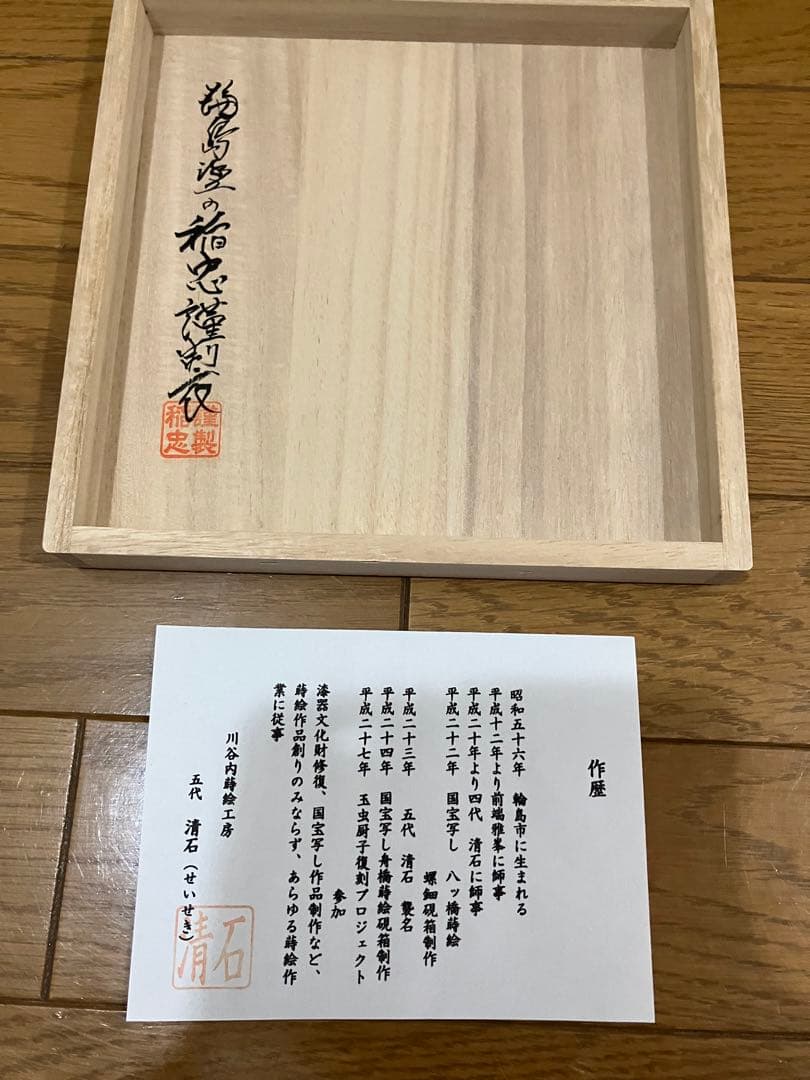 輪島塗の稲忠謹製
謹製
稲忠
作歴
昭和五十六年 輪島市に生まれる
平成十二年より前端雅峯に師事
平成二十年より四代 清石に師事
平成二十二年 国宝写し 八ッ橋蒔絵
螺鈿硯箱制作
平成二十三年 五代 清石 襲名
平成二十四年 国宝写し舟橋蒔絵硯箱制作
平成二十七年 玉虫厨子復刻プロジェクト
参加
漆器文化財修復、国宝写し作品制作など、
蒔絵作品創りのみならず、あらゆる蒔絵作
業に従事
川谷内蒔絵工房
五代 清石（せいせき）
清石